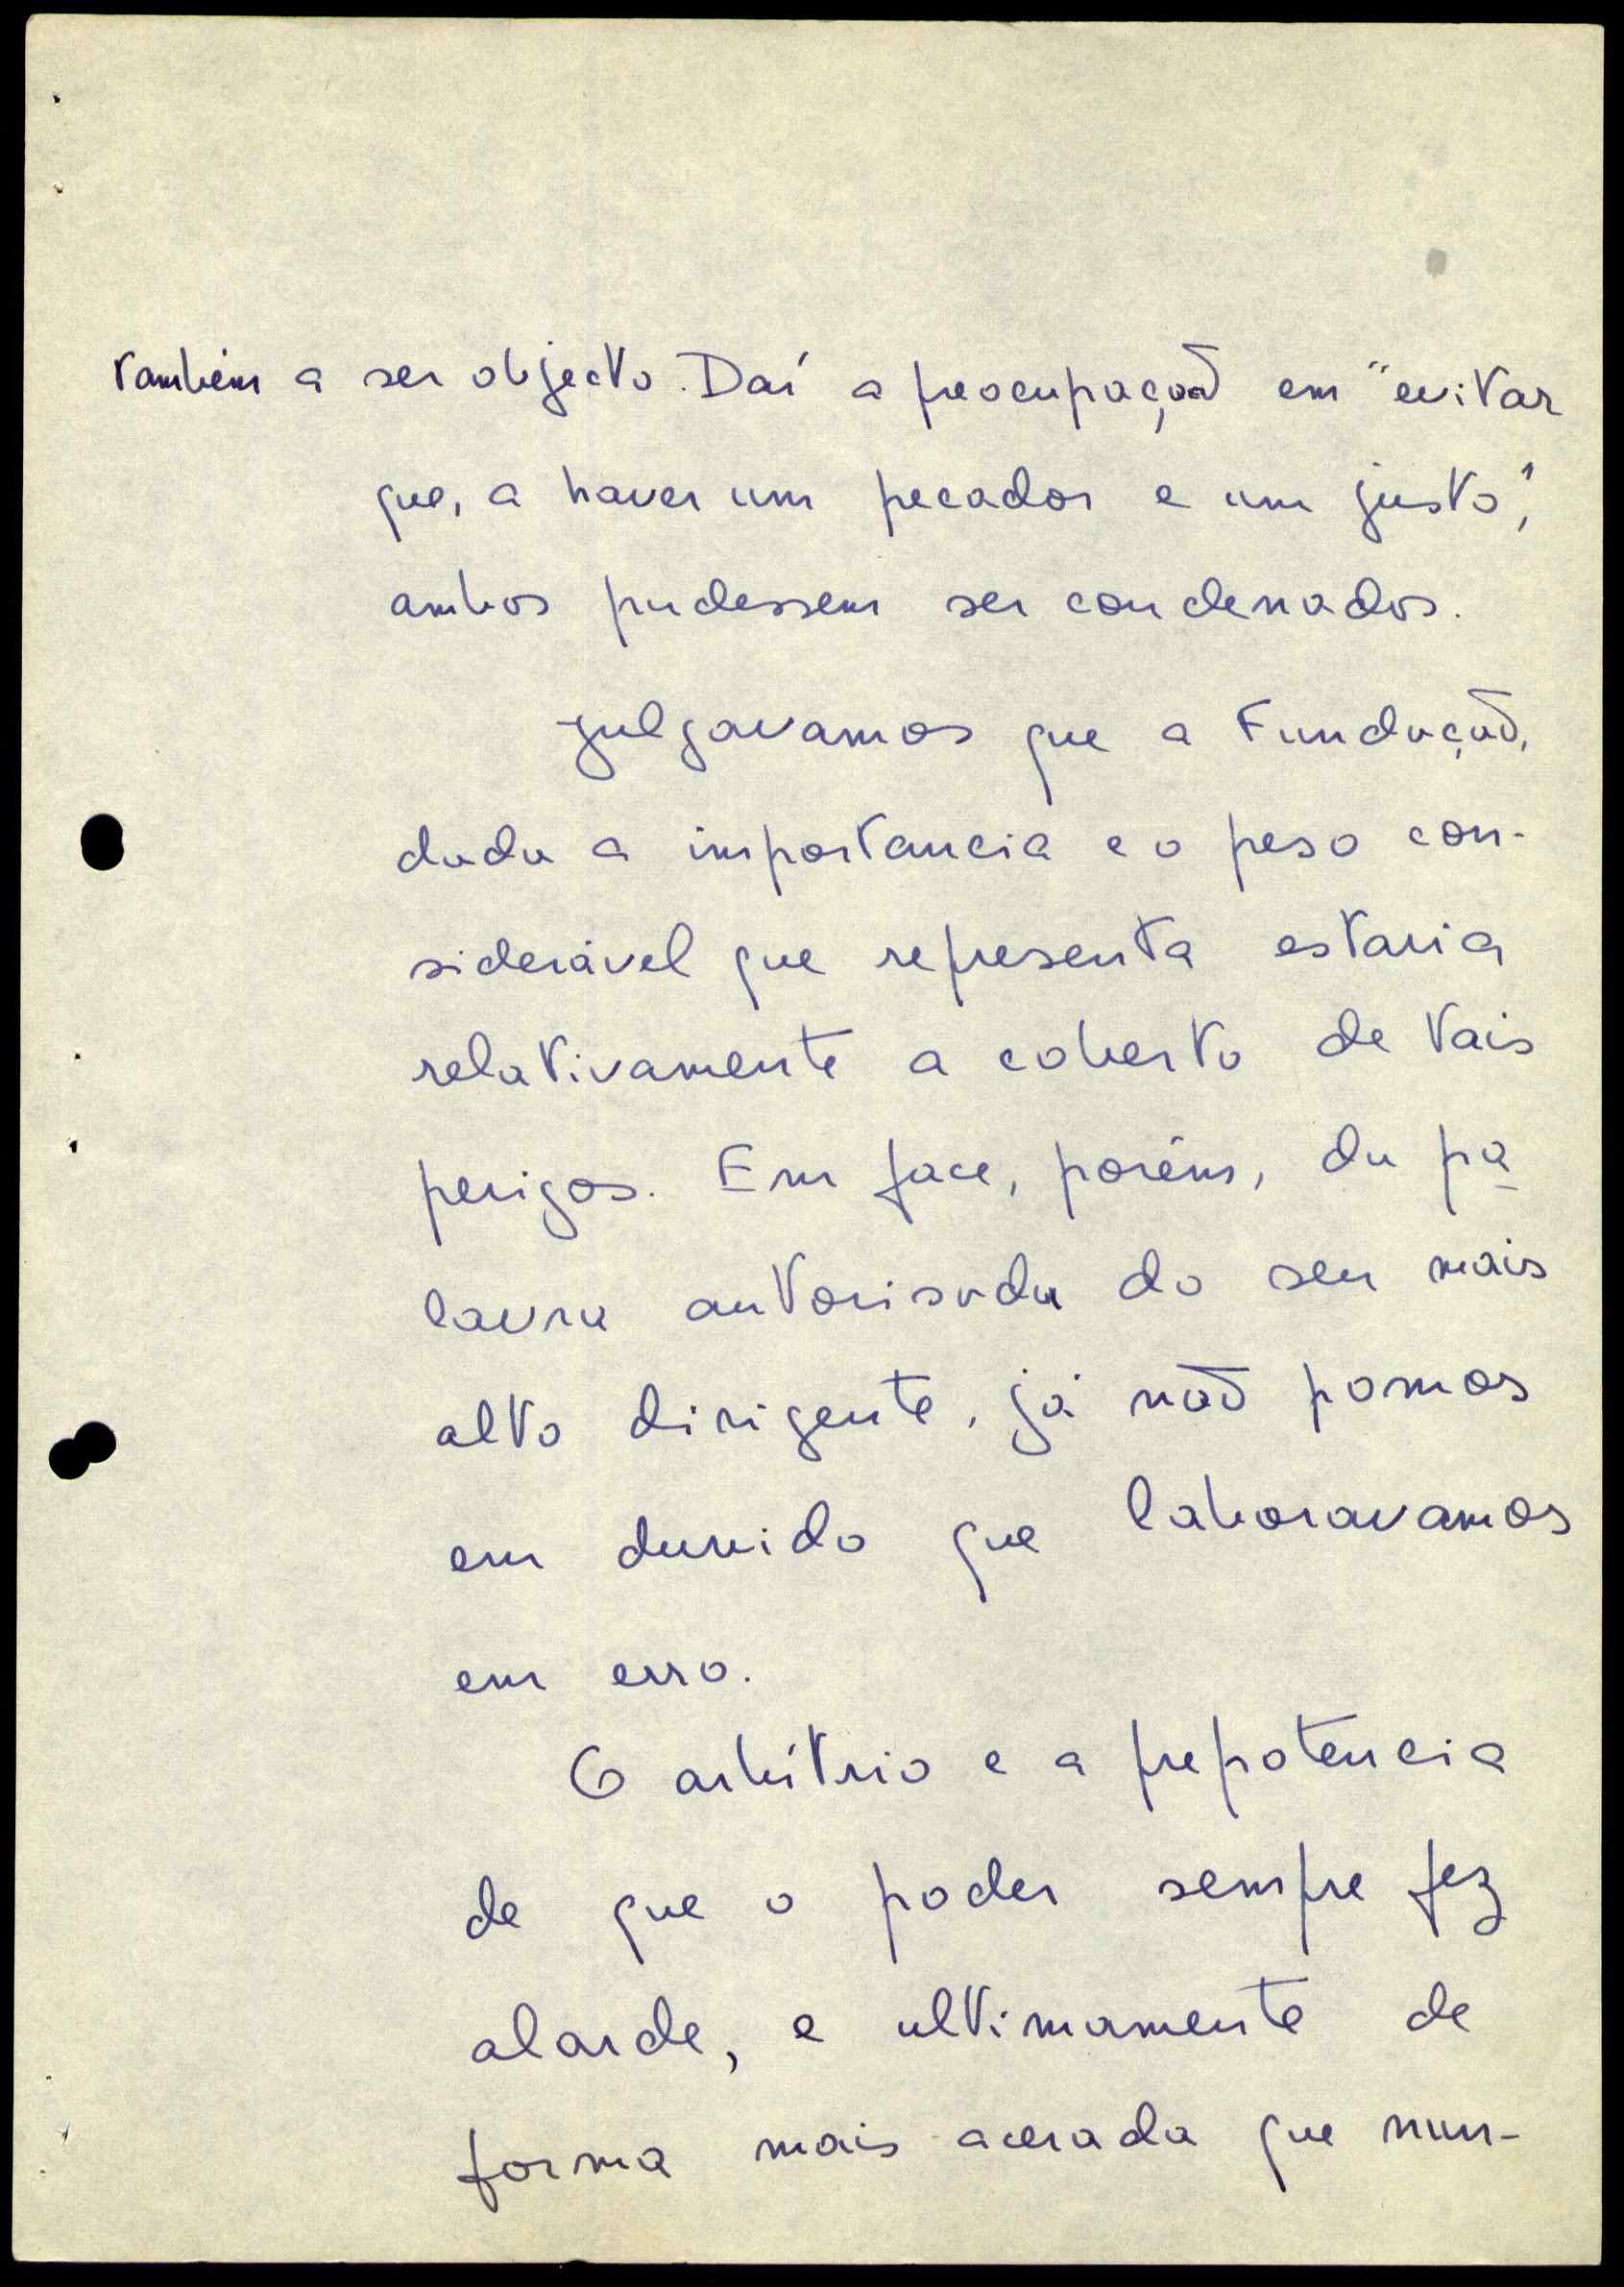 também a ser objecto. Daí a preocupação em "evitar
que, a haver um pecador e um justo",
ambos pudessem ser condenados.
Julgavamos que a Fundação,
dada a importancia e o peso con-
siderável que representa estaria
relativamente a coberto de tais
perigos. Em face, porém, da pa
lavra autorisada do seu mais
alto dirigente, já não pomos
em duvida que laboravamos
em erro.
O arbítrio e a prepotencia
de que o poder sempre fez
alarde, e ultimamente de
forma mais acerada que nun-